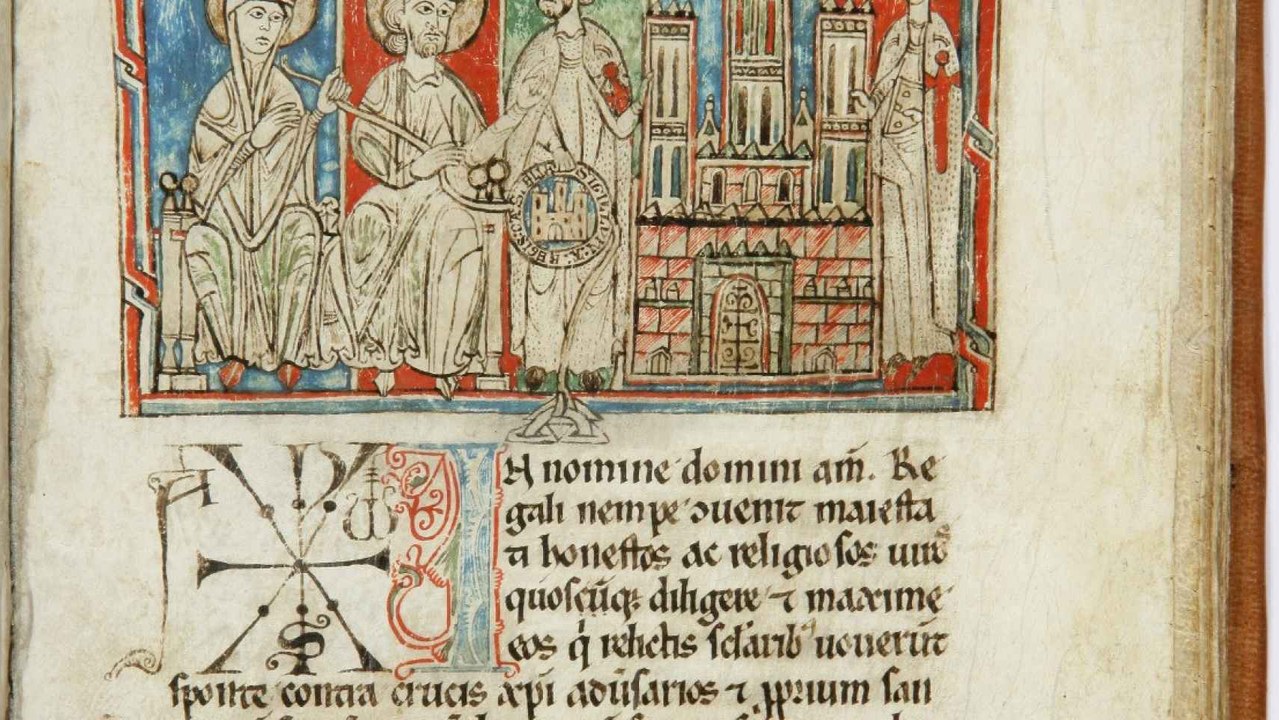 SIGILLUM REGIS
IN nomine domini am̄. Re
gali nempe ꝯuenit maiesta
ti honestos ac religiosos uiros
quoscūq; diligere ⁊ maxime
eos q̇ relictis sclarib᷒ uouerūt
sponte contra crucis xp̄i adūsarios ⁊ ꝓprium san